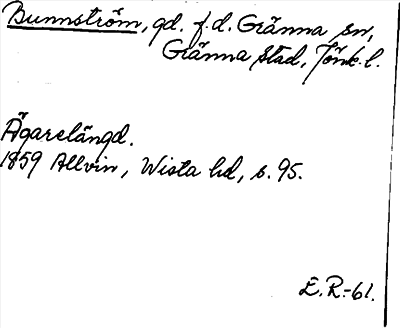 Bunnström, gd. f.d. Gränna sn,
Gränna Stad, Jönk.l.
Ägarelängd.
1859 Allvin, Wista hd, s. 95.
E.R.-61.